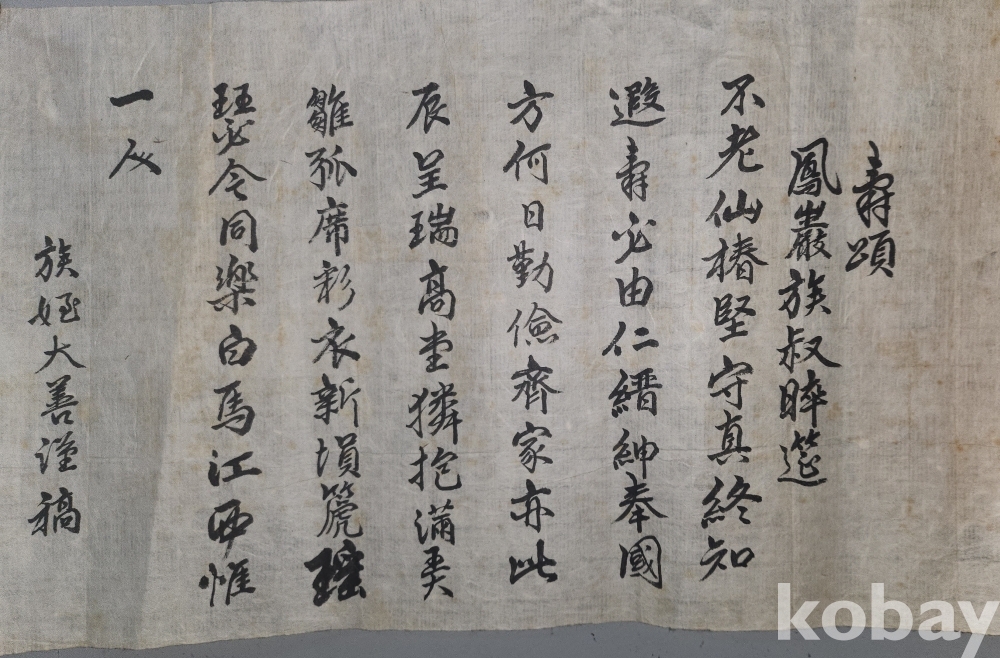 壽頌
鳳巖族叔晬筵
不老仙椿堅守真終知
遐壽必由仁縉紳奉國
方何日勤儉齊家亦此
辰呈瑞高堂獜抱滿
雛孤席彩衣新塤篪瑤
瑟令同樂白馬江西惟
一人
族姪大善謹稿
kobay